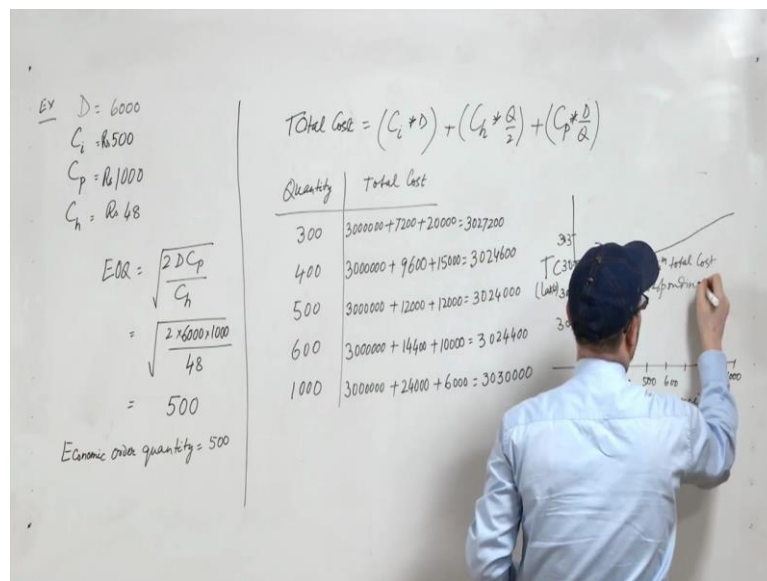 Ex D = 6000
Ci = Rs 500
Cp = Rs 1000
Ch = Rs 48
EOQ = √(2DCp/Ch)
= √(2×6000×1000/48)
= 500
Economic order quantity = 500
Total Cost = (Ci * D) + (Ch * Q/2) + (Cp * D/Q)
Quantity | Total Cost
300 | 3000000 + 7200 + 20000 = 3027200
400 | 3000000 + 9600 + 15000 = 3024600
500 | 3000000 + 12000 + 12000 = 3024000
600 | 3000000 + 14400 + 10000 = 3024400
1000 | 3000000 + 24000 + 6000 = 3030000
total Cost
500 600